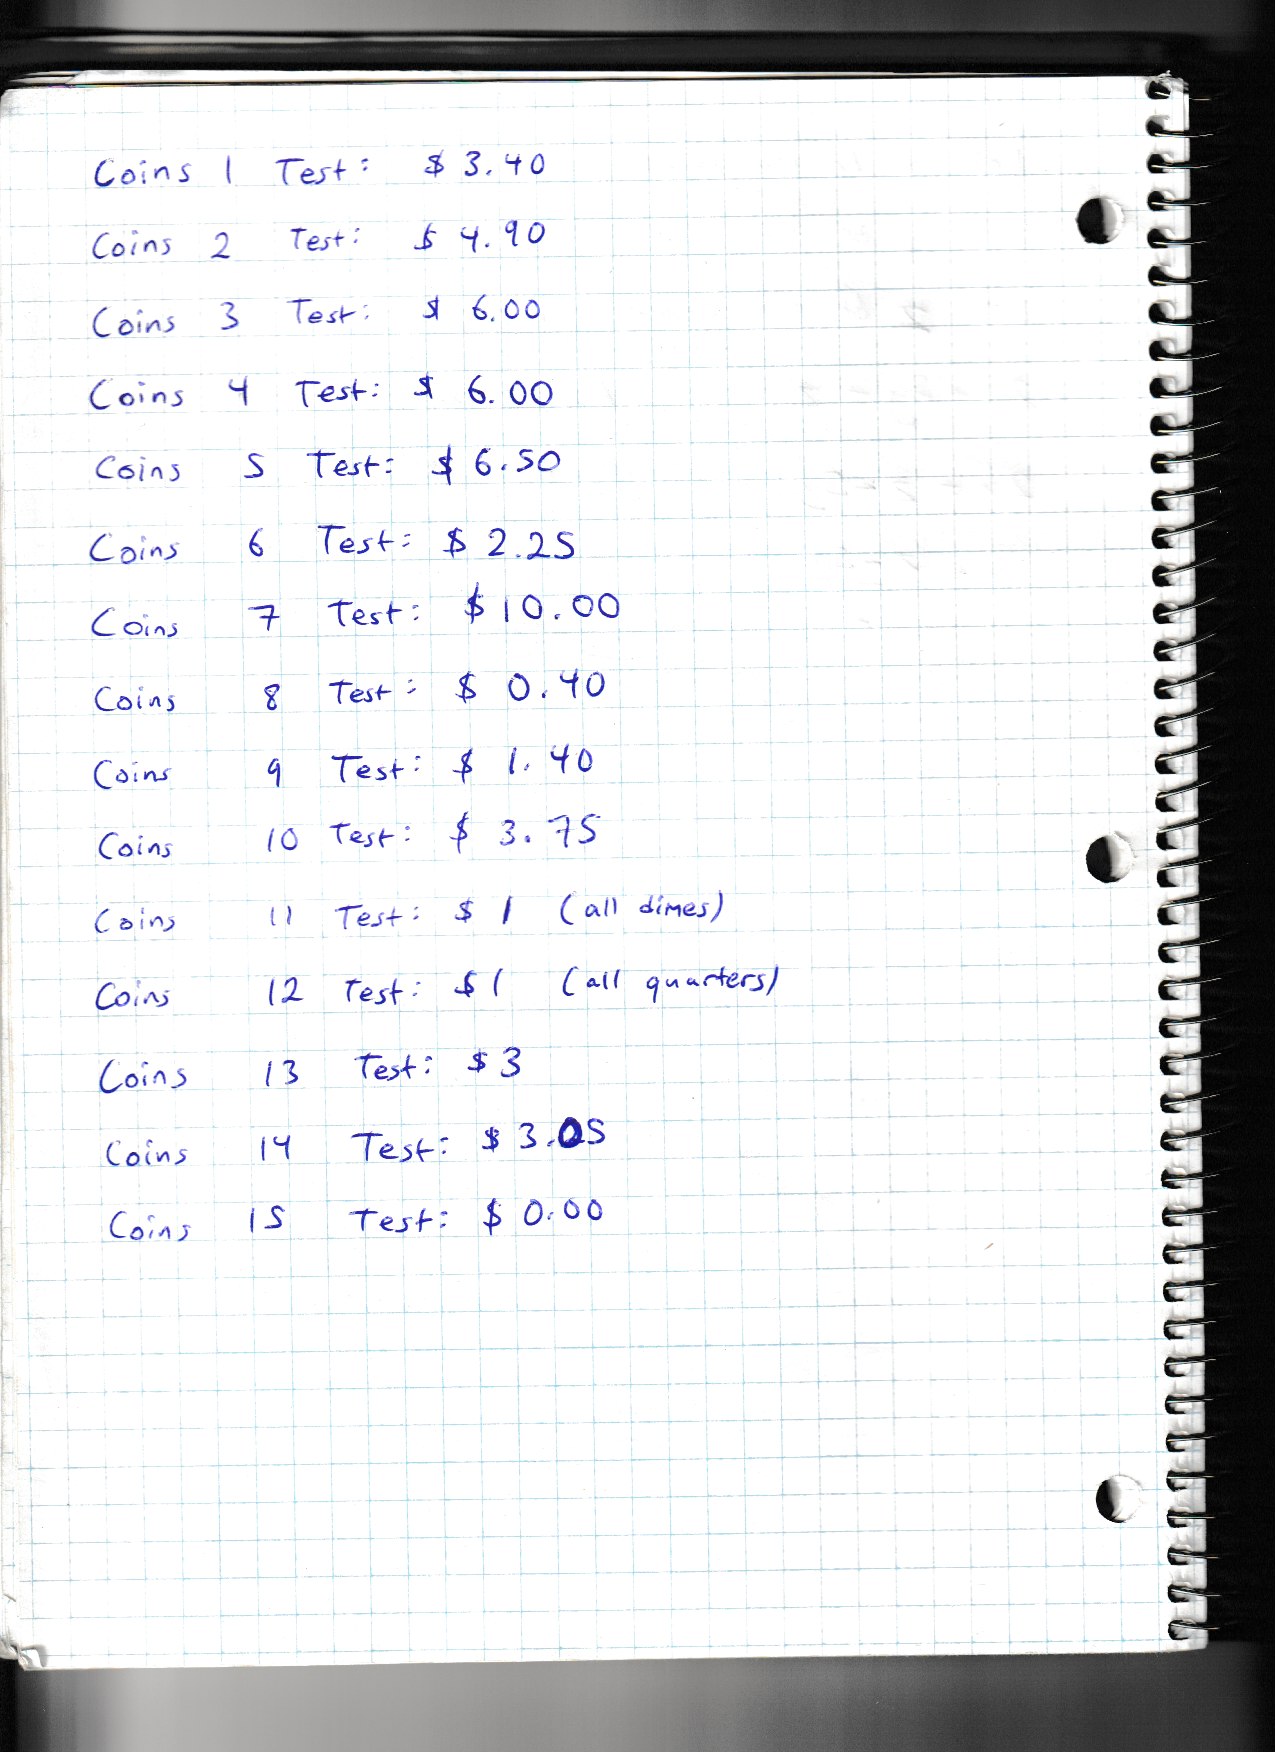 Coins 1 Test: $ 3.40
Coins 2 Test: $ 4.90
Coins 3 Test: $ 6.00
Coins 4 Test: $ 6.00
Coins 5 Test: $ 6.50
Coins 6 Test: $ 2.25
Coins 7 Test: $ 10.00
Coins 8 Test: $ 0.40
Coins 9 Test: $ 1.40
Coins 10 Test: $ 3.75
Coins 11 Test: $ 1 (all dimes)
Coins 12 Test: $1 (all quarters)
Coins 13 Test: $3
Coins 14 Test: $ 3.05
Coins 15 Test: $ 0.00